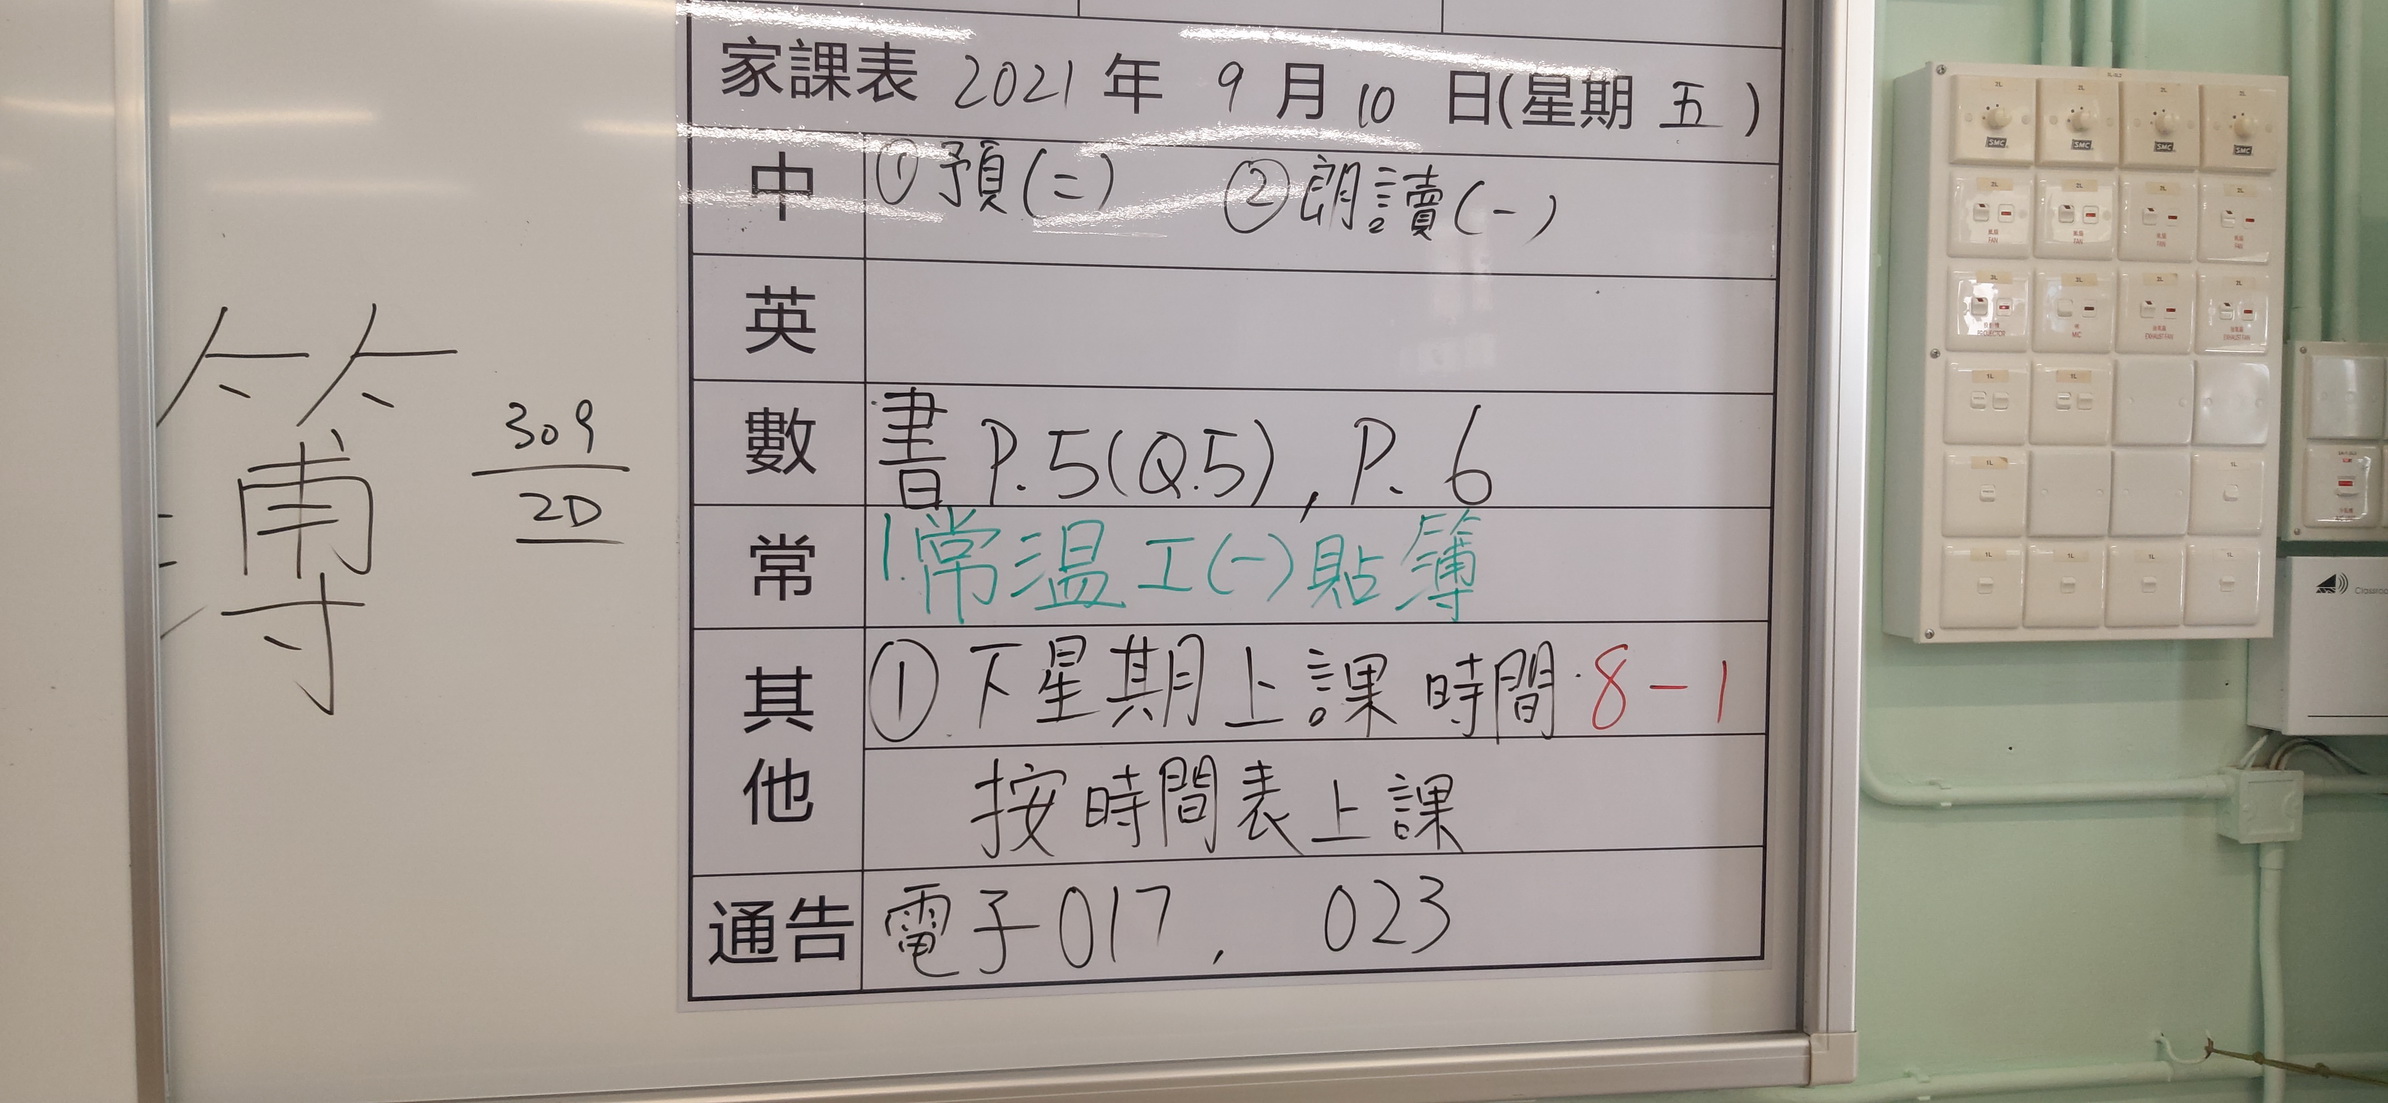 簿
309
2D
家課表 2021 年 9 月 10 日(星期 五)
中 ①預(二) ②朗讀(一)
英
數 書 P.5(Q.5), P. 6
常 1.常温工(一)貼簿
其他 ①下星期上課時間:8-1
按時間表上課
通告 電子017, 023
SMC SMC SMC SMC
FAN FAN FAN FAN
PROJECTOR MIC EXHAUST FAN EXHAUST FAN